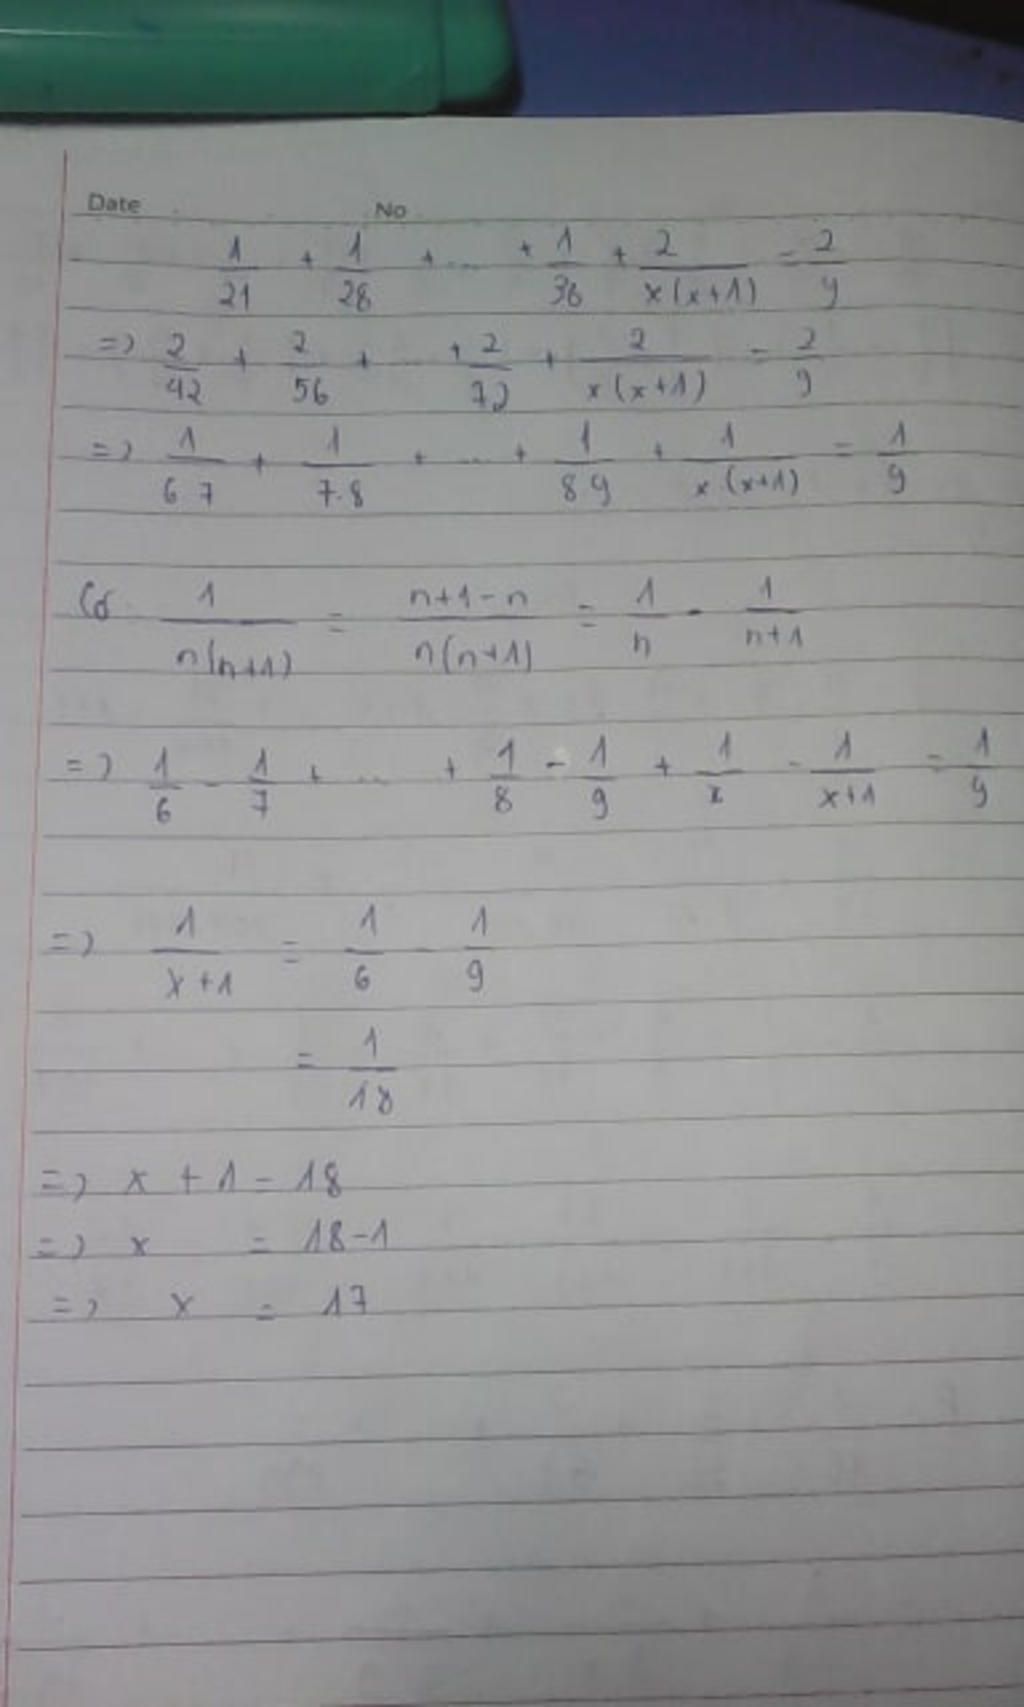 Date No
1/21 + 1/28 + ... + 1/36 + 2/x(x+1) = 2/9
=> 2/42 + 2/56 + ... + 2/72 + 2/x(x+1) = 2/9
=> 1/6.7 + 1/7.8 + ... + 1/8.9 + 1/x.(x+1) = 1/9
Có 1/n(n+1) = n+1-n/n(n+1) = 1/n - 1/n+1
=> 1/6 - 1/7 + ... + 1/8 - 1/9 + 1/x - 1/x+1 = 1/9
=> 1/x+1 = 1/6 - 1/9
= 1/18
=> x + 1 = 18
=> x = 18-1
=> x = 17